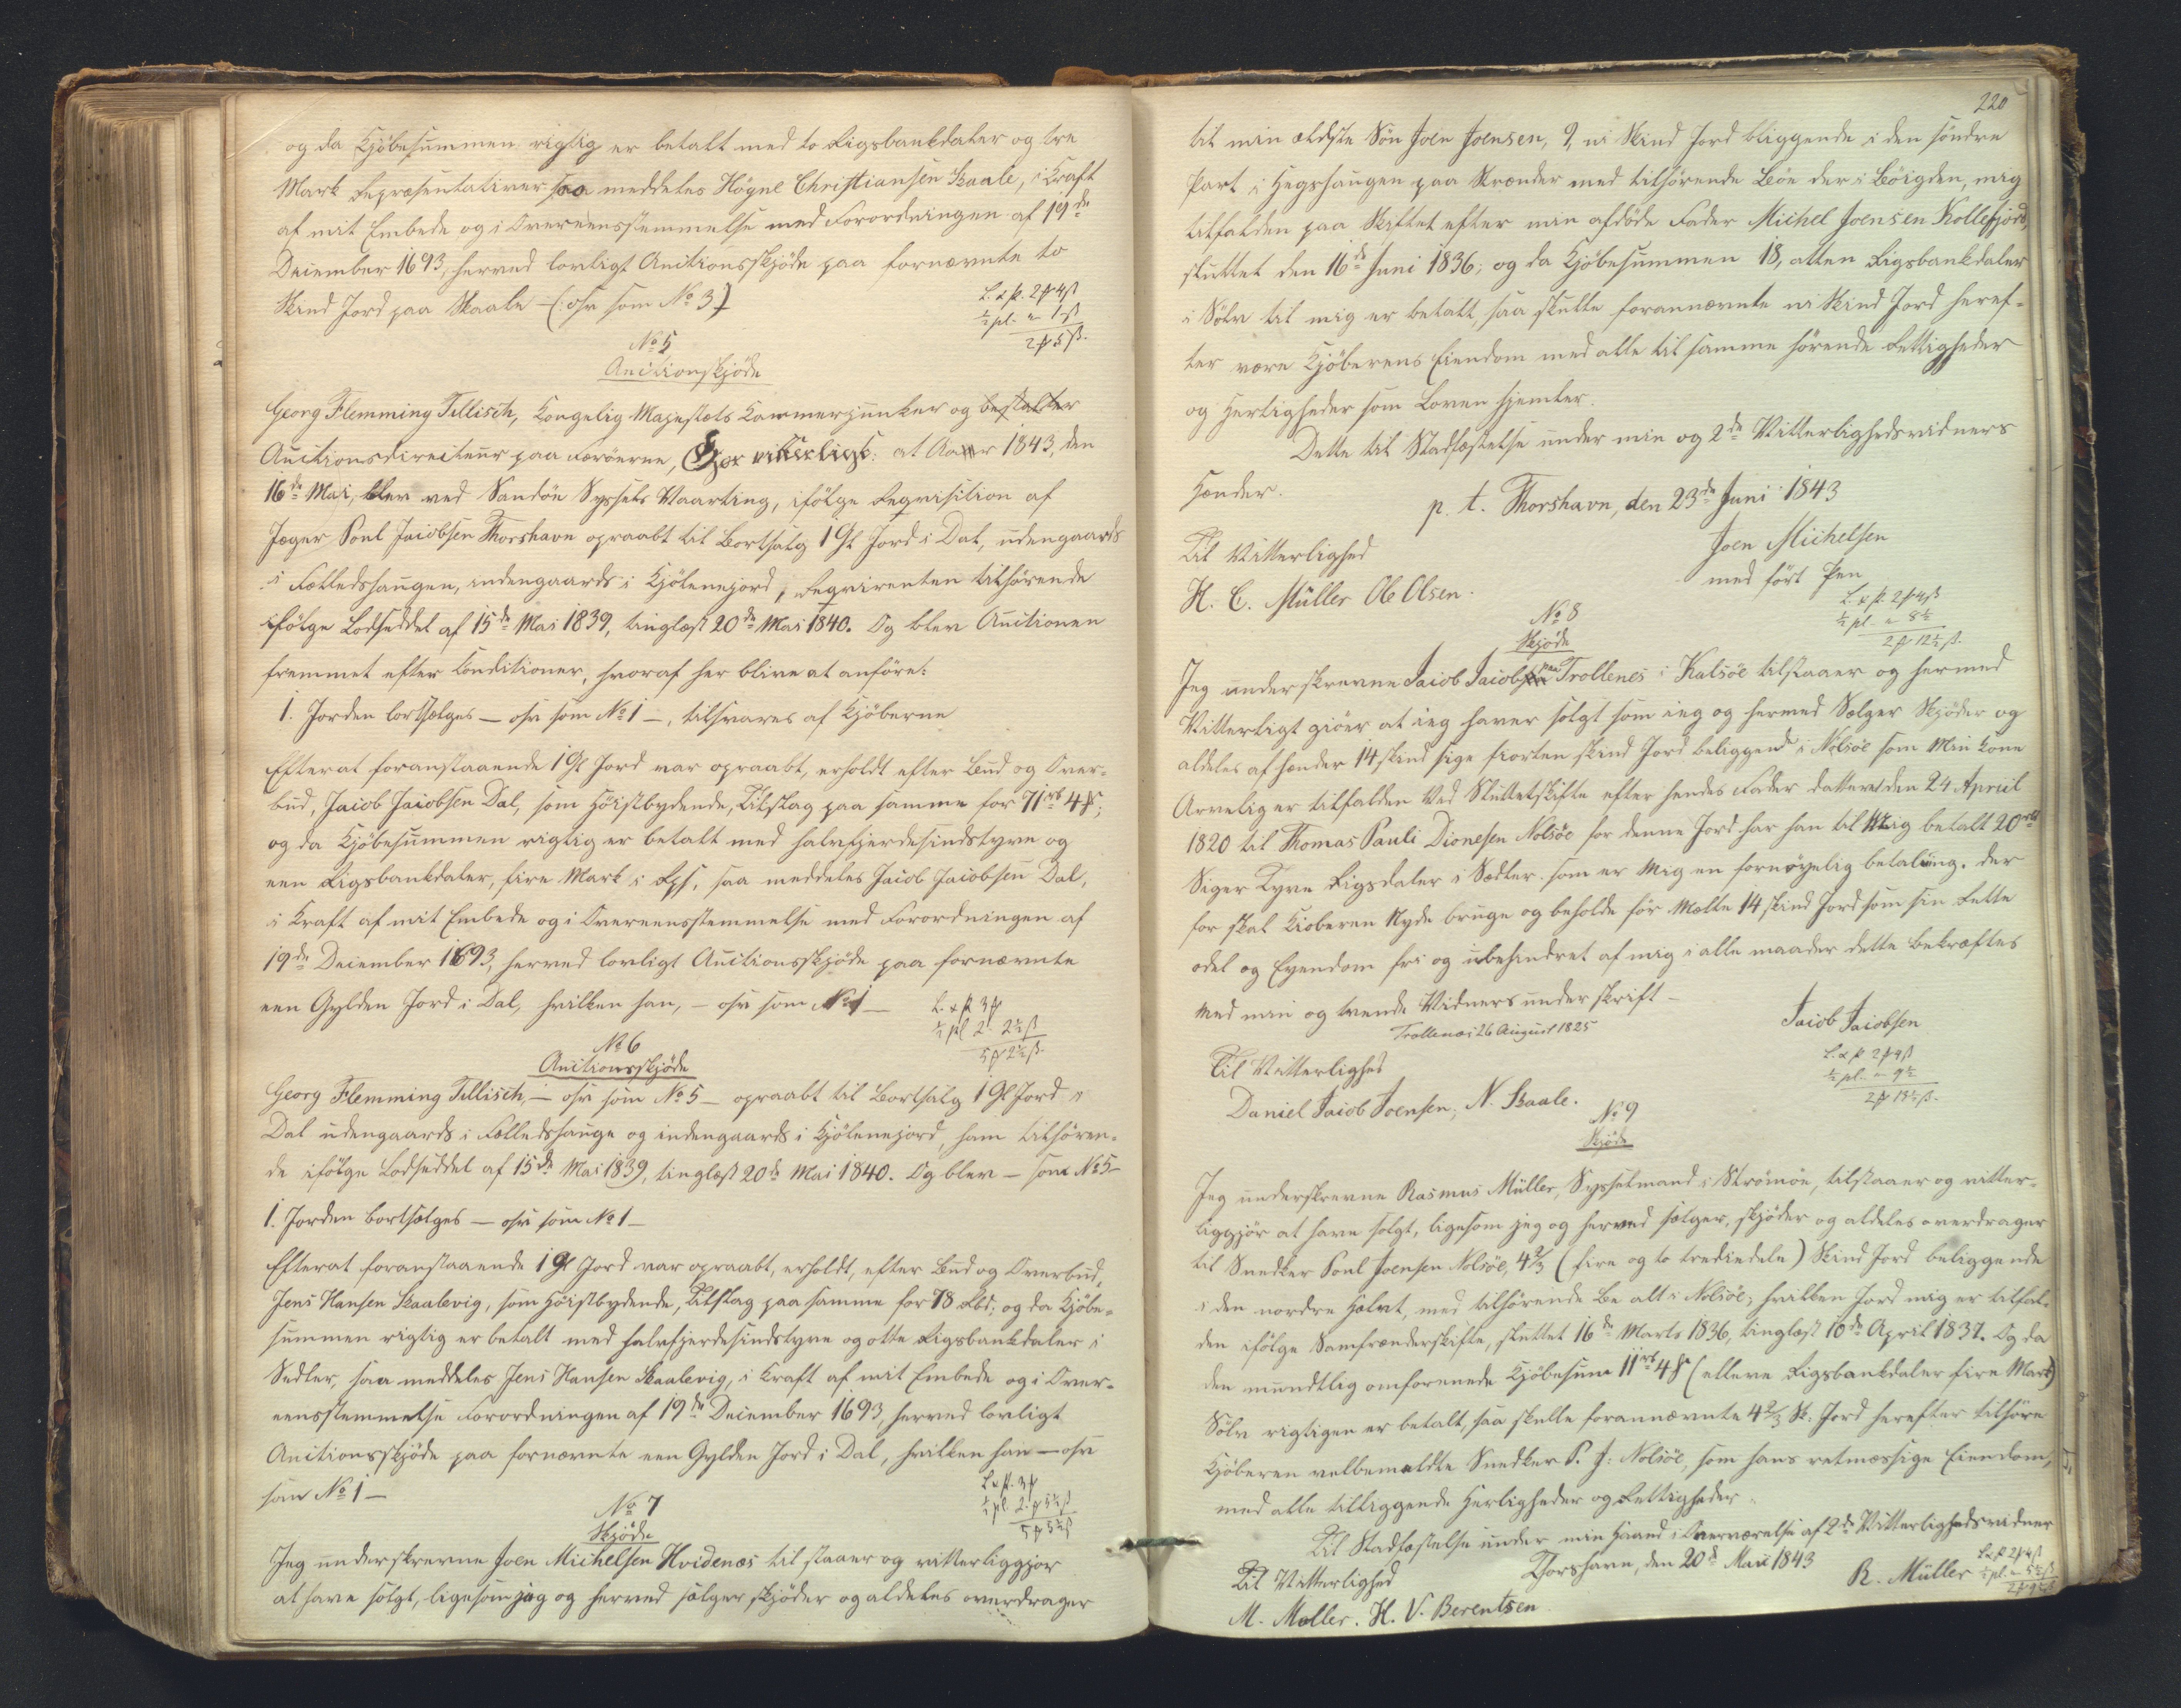 og da Kjöbesummen rigtig er betalt med to Rigsbankdaler og tre
Mark Repræsentativer saa meddeles Högne Christiansen Skaale, i Kraft
af mit Embede og i Overeensstemmelse med Forordningen af 19de
December 1693, herved lovligt Auctionsskjöde paa fornævnte to
Skind Jord paa Skaale – (: osv som No 3)
2 ß 4 ß
½ pl. " 1 ß
2 5 ß.
No 5
Auctionsskjöde
Georg Flemming Tillisch, Kongelig Majestæts Kammerjunker og bestalter
Auctionsdirecteur paa Færöerne, Gjör vitterligt: at Aar 1843, den
16de Mai, blev ved Sandöe Syssels Vaarting, ifölge Reqvisition af
Jæger Poul Jacobsen Thorshavn opraabt til Bortsalg 1 Gl Jord i Dal, udengaards
i Fælledshaugen, indengaards i Kjölenejord, Reqvirenten tilhörende
ifölge Lodseddel af 15de Mai 1839, tinglæst 20de Mai 1840. Og blev Auctionen
fremmet efter Conditioner, hvoraf her blive at anföre:
1. Jorden bortsælges – osv som No 1 –, tilsvares af Kjöberne
Efterat foranstaaende 1 Gl Jord var opraabt, erholdt efter Bud og Over-
bud, Jacob Jacobsen Dal, som Höistbydende, Tilslag paa samme for 71 rb 4 ;
og da Kjöbesummen rigtig er betalt med halvfjerdesindstyve og
een Rigsbankdaler, fire Mark i , saa meddeles Jacob Jacobsen Dal,
i Kraft af mit Embede og i Overeensstemmelse med Forordningen af
19de December 1693, herved lovligt Auctionsskjöde paa fornævnte
een Gylden Jord i Dal, hvilken han, – osv som No 1 –
3
½ pl 2. 2½ ß
5 2½ ß.
No 6
Auctionsskjöde
Georg Flemming Tillisch, – osv som No 5 – opraabt til Bortsalg 1 Gl Jord i
Dal udengaards i Fælledshauge og indengaards i Kjölenejord, ham tilhören-
de ifölge Lodseddel af 15de Mai 1839, tinglæst 20de Mai 1840. Og blev – som No 5 –
1. Jorden bortsælges – osv som No 1 –
Efterat foranstaaende 1 Gl Jord var opraabt, erholdt, efter Bud og Overbud,
Jens Hansen Skaalevig, som Höistbydende, Tilslag paa samme for 78 Rbd; og da Kjöbe-
summen rigtig er betalt med halvfjerdesindstyve og otte Rigsbankdaler i
Sedler, saa meddeles Jens Hansen Skaalevig, i Kraft af mit Embede og i Over-
eensstemmelse Forordningen af 19de December 1693, herved lovligt
Auctionsskjöde paa fornævnte een Gylden Jord i Dal, hvilken han – osv
som No 1 –
3
½ pl. 2 5½ ß
5 5½ ß
No 7
Skjöde
Jeg underskrevne Joen Michelsen Hvidenæs tilstaaer og vitterliggjör
at have solgt, ligesom jeg og herved sælger skjöder og aldeles overdrager
220
til min ældste Sön Joen Joensen, 9, ni Skind Jord beliggende i den söndre
Part i Hegshaugen paa Strænder med tilhörende Böe der i Böigden, mig
tilfalden paa Skiftet efter min afdöde Fader Michel Joensen Kollefjord,
sluttet den 16de Juni 1836; og da Kjöbesummen 18, atten Rigsbankdaler
i Sölv til mig er betalt, saa skulle forannævnte ni Skind Jord heref-
ter være Kjöberens Eiendom med alle til samme hörende Rettigheder
og Herligheder som Loven hjemler.
Dette til Stadfæstelse under min og 2de Vitterlighedsvidners
Hænder.
p. t. Thorshavn, den 23de Juni 1843
Joen Michelsen
med fört Pen
Til Vitterlighed
H. C. Müller Ole Olsen.
2 4 ß
½ pl. " 8½
2 12½ ß.
No 8
Skjöde
Jeg underskrevne Jacob Jacobsen paa Trollenes i Kalsöe tilstaaer og hermed
Vitterligt giöer at ieg haver solgt som ieg og hermed Sælger Skjöder og
aldeles afhænder 14 skind sige fiorten skind Jord beliggend i Nolsöe som Min kone
Arvelig er tilfalden Ved Sluttetskifte efter hendes Fader datteret den 24 Apriil
1820 til Thomas Pauli Dionesen Nolsöe for denne Jord har han til Mig betalt 20 rd
Siger Tyve Rigsdaler i Sedler som er Mig en fornöyelig betaling. der
for skal Kioberen Nyde bruge og beholde för Mælte 14 skind Jord som sin Rette
odel og Eyendom fri og ubehindret af mig i alle maader dette bekræftes
med min og tvende Vidners underskrift –
Trollenæs 26 August 1825
Jacob Jacobsen
Til Vitterlighed
Daniel Jacob Joensen, N. Skaale.
2 4 ß
½ pl. " 9½
2 13½ ß.
No 9
Skjöde
Jeg underskrevne Rasmus Müller, Sysselmand i Strömöe, tilstaaer og vitter-
liggjör at have solgt, ligesom jeg og herved sælger, skjöder og aldeles overdrager
til Snedker Poul Joensen Nolsöe, 4⅔ (fire og to trediedele) Skind Jord beliggende
i den nordre Halvt, med tilhörende Be alt i Nolsöe; hvilken Jord mig er tilfal-
den ifölge Samfrænderskifte, sluttet 16de Marts 1836, tinglæst 10de April 1837. Og da
den mundtlig omforenede Kjöbesum 11 rb 4 (elleve Rigsbankdaler fire Mark)
Sölv rigtigen er betalt, saa skulle forannævnte 4⅔ Sk. Jord herefter tilhöre
Kjöberen velbemældte Snedker P. J. Nolsöe, som hans retmæssige Eiendom,
med alle tilliggende Herligheder og Rettigheder.
Til Stadfæstelse under min Haand i Overværelse af 2de Vitterlighedsvidner
Thorshavn, den 20de Mai 1843
R. Müller
Til Vitterlighed
M. Müller. H. V. Berentsen
2 4 ß
½ pl. " 5½ ß
2 9½ ß